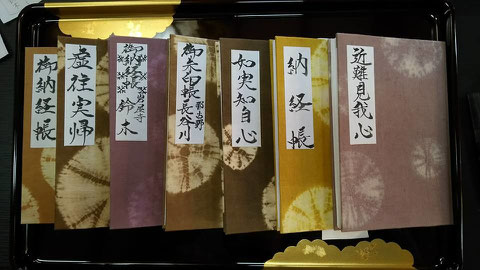 近難見我心
納経帳
如実知自心
御朱印帳長谷川
御納経帳
鈴木
虚往実帰
御納経帳